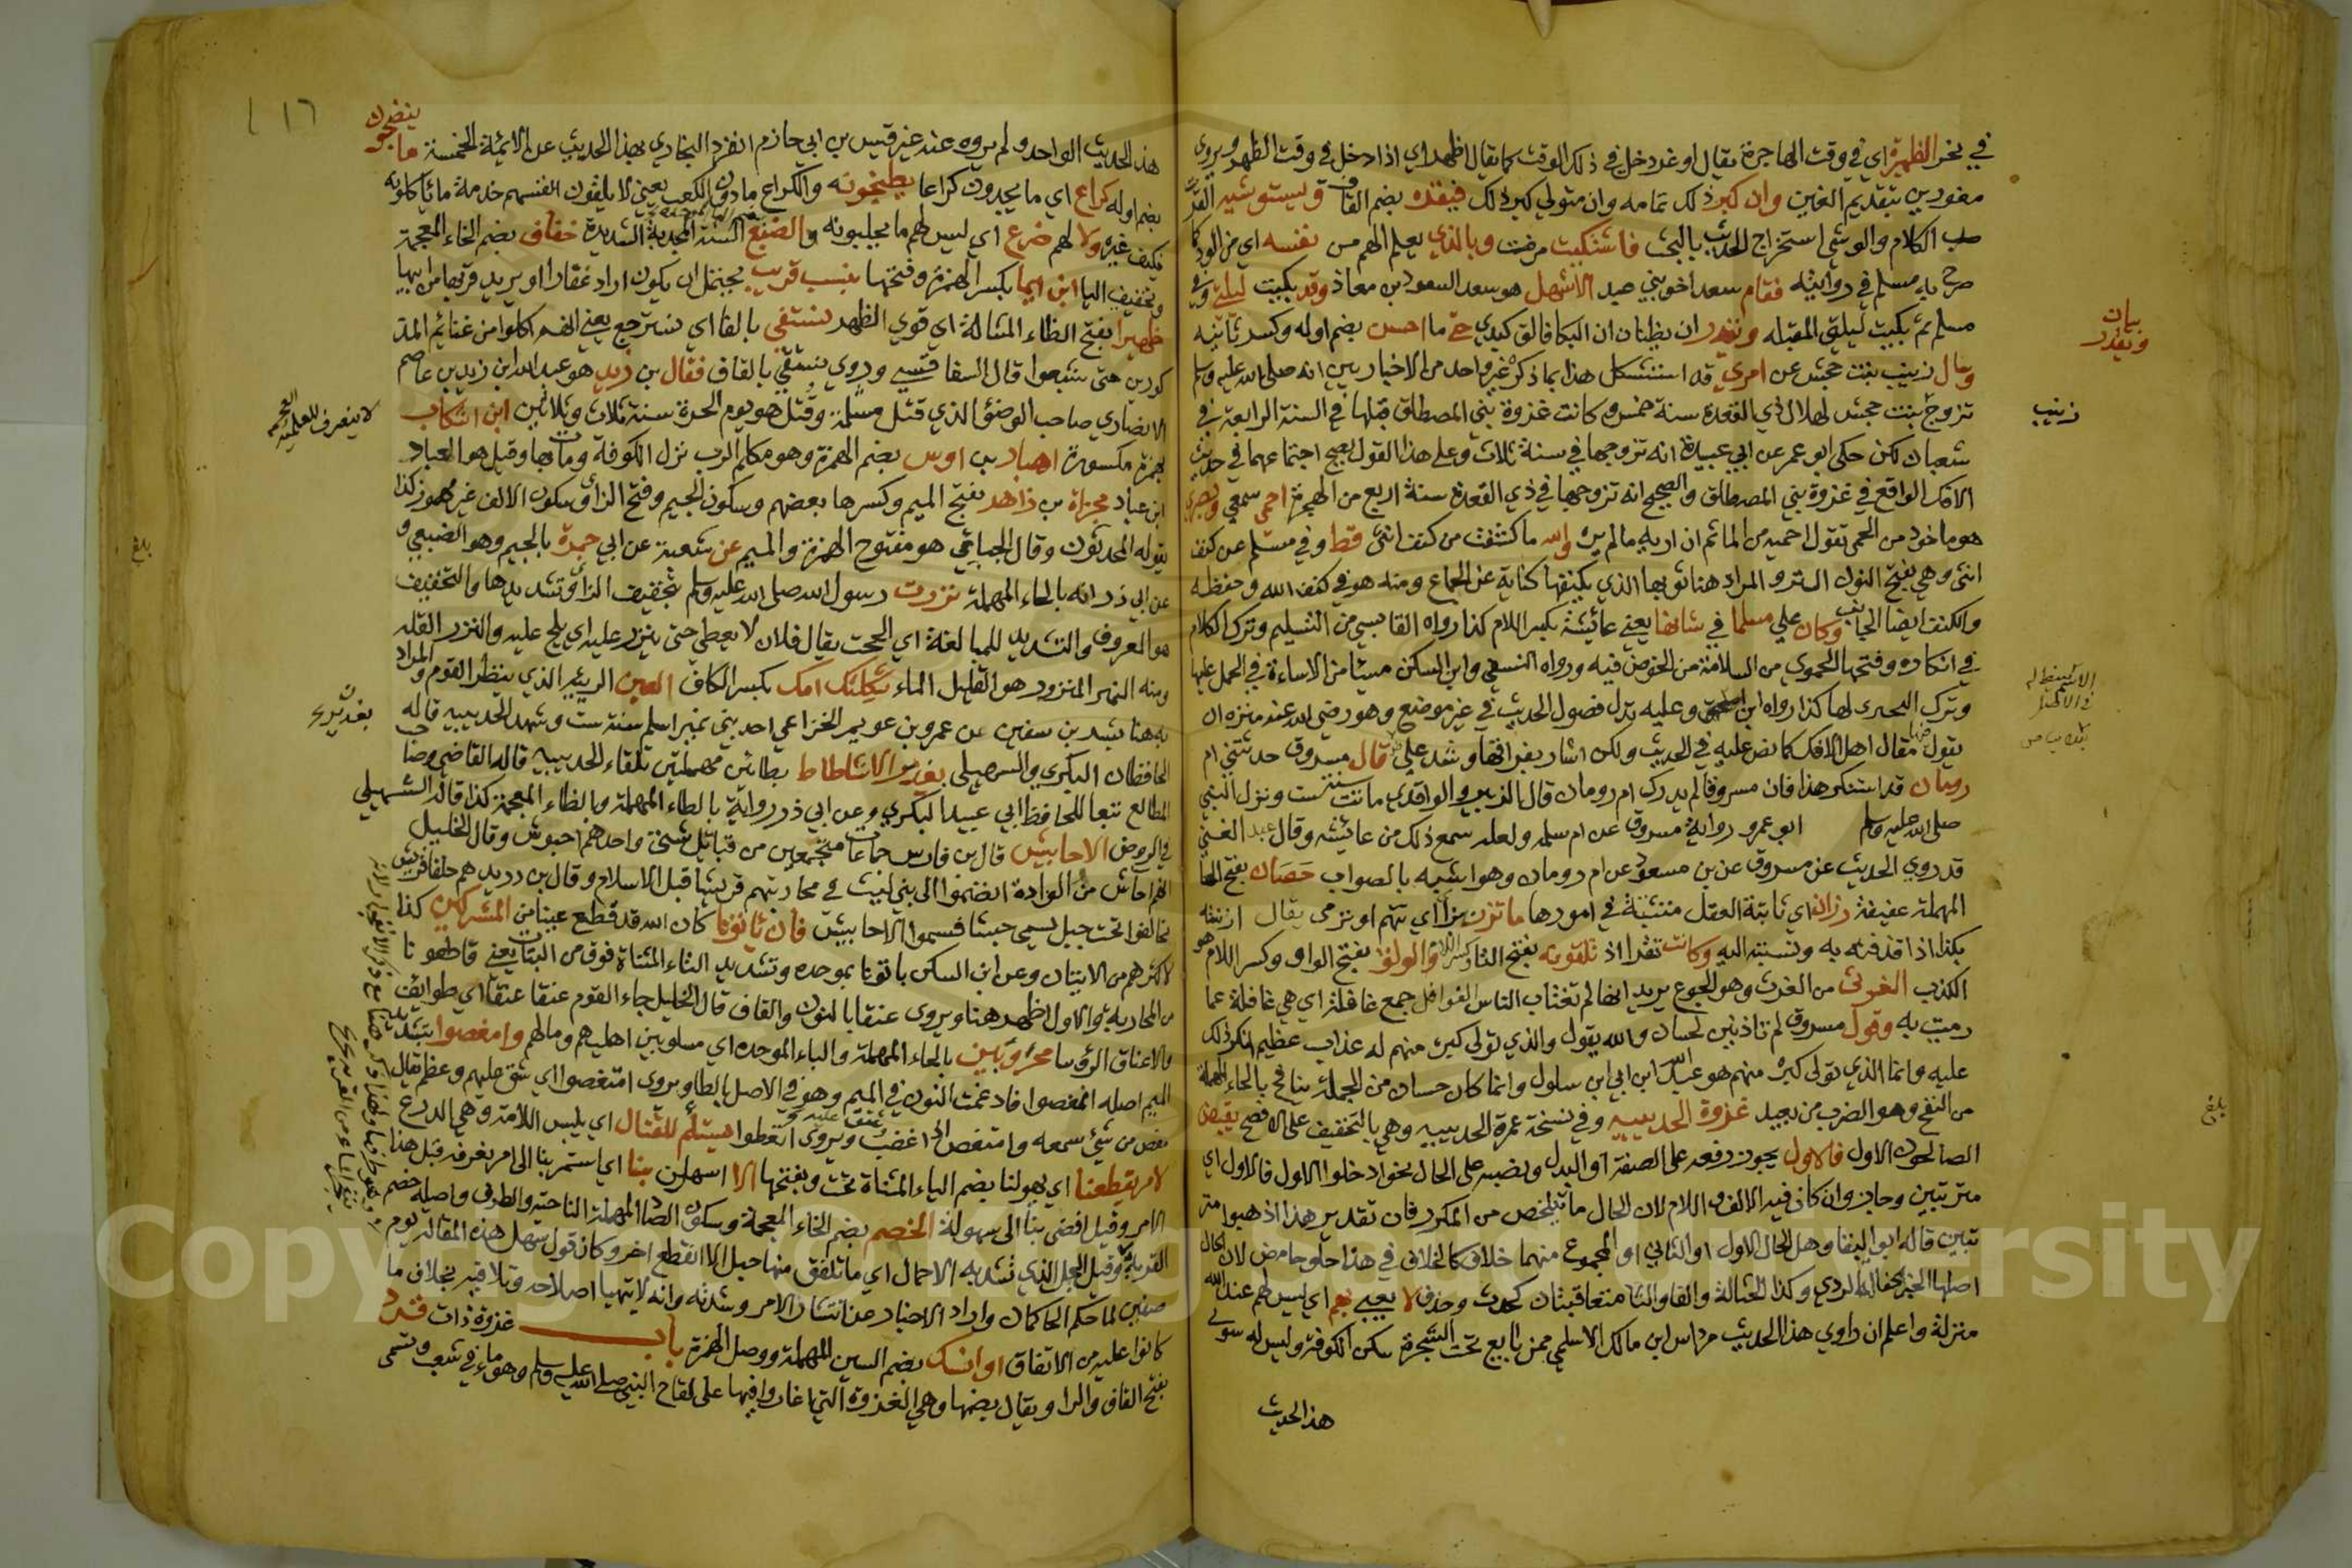 في نحر الظهيرة اي في وقت الهاجرة يقال اوغر دخل في ذلك الوقت كما يقال اظهر اي اذا دخل في وقت الظهر ويروى
مغورين بتقديم الغين وان كبر ذلك تمامه وان متولي كبر ذلك فيقره بضم القاف ويستوشيه
الكلام والوشي استخراج الحديث بالبحث فاشتكيت مرضت وبالذي يعلم لهم من نفسه اي من الود كما
صرح به مسلم في روايته فقام سعد اخو بني عبد الاشهل هو سعد السعود بن معاذ وقد بكيت ليلتي وفي
مسلم ثم بكيت ليلتي المقبله ويظنان ان البكا فالق كبدي حتى ما احس بضم اوله وكسر ثانيه
وسال زينب بنت جحش عن امري قد استشكل هذا بما ذكره غير واحد من الاخباريين انه صلى الله عليه وسلم
تزوج بنت جحش لهلال ذي القعدة سنة خمس وكانت غزوة بني المصطلق قبلها في السنة الرابعة في
شعبان لكن حكى ابو عمر عن ابي عبيدة انه تزوجها في سنة ثلاث وعلى هذا القول يصح اجتماعهما في حديث
الافك الواقع في غزوة بني المصطلق والصحيح انه تزوجها في ذي القعدة سنة اربع من الهجرة احمي سمعي وبصري
هو ماخوذ من الحمى تقول احميه من الماثم ان اريه مالم يره والله ما كشفت من كنف انثى قط وفي مسلم عن كنف
انثى وهي بفتح النون الستر والمراد هنا ثوبها الذي يكنفها كناية عن الجماع ومنه هو في كنف الله وحفظه
والكنف ايضا الجانب وكان علي مسلما في شانها يعني عائشة بكسر اللام كذا رواه القابسي من التسليم وترك الكلام
في انكاره وفتحها الحموي من السلامة من الخوض فيه ورواه النسفي وابن السكن مسيئا من الاساءة في الحمل عليها
وترك لها كذا رواه ابن وعليه تدل فصول الحديث في غير موضع وهو رضي الله عنه منزه ان
يقول مقال اهل الافك كما نص عليه في الحديث ولكن اشار بفراقها وشد علي قال مسروق حدثتني ام
رومان قد استنكر هذا فان مسروقا لم يدرك ام رومان قال الزبير والواقدي ماتت سنة ست ونزل النبي
صلى الله عليه وسلم ابو عمرو رواية مسروق عن ام سلمه ولعله سمع ذلك من عايشه وقال عبد الغني
قد روي الحديث عن مسروق عن بن مسعود عن ام رومان وهو اشبه بالصواب حصان بفتح الحا
المهملة عفيفة رزان اي ثابتة العقل متثبتة في امورها ما تزن اي تتهم او ترمى يقال ازننته
بكذا اذا قذفته به ونسبته اليه وكانت تقرا اذ تلقونه بفتح التا وكسر اللام والولق بفتح الواو وكسر اللام هو
الكذب الغرثى من الغرث وهو الجوع يريد انها لم تغتاب الناس الغوافل جمع غافلة اي هي غافلة عما
رميت به وقول مسروق لم تاذنين لحسان والله يقول والذي تولى كبره منهم له عذاب عظيم انكر ذلك
عليه وانما الذي تولى كبره منهم هو عبد الله ابن ابي ابن سلول وانما كان حسان من الجملة ينافح بالحاء المهملة
من النفح وهو الضرب من بعيد غزوة الحديبيه وفي نسخة عمرة الحديبيه وهي بالتخفيف على الافصح يقبض
الصالحون الاول فالاول يجوز رفعه على الصفة او البدل ونصبه على الحال نحو ادخلوا الاول فالاول اي
مترتبين وجاز وان كان فيه الالف واللام لان الحال ما يتلخص من المكرر فان تقدير هذا اذهبوا متر
تبين قاله ابو البقا وهل الحال الاول او الثاني او المجموع منهما خلاف كالخلاف في هذا حلو حامض لان الحال
اصلها الخبر حفالة الردي وكذا الحثالة والفا والثا متعاقبتان كجدث وجدف لا يعبي بهم اي ليس لهم عند الله
منزلة واعلم ان راوي هذا الحديث مرداس ابن مالك الاسلمي ممن بايع تحت الشجرة سكن الكوفة وليس له سوى
هذا الحديث
بيان
وتقدر
زينب
بلغ
١٦
هذا الحديث الواحد ولم يروه عنه غير قيس بن ابي حازم انفرد البخاري بهذا الحديث عن الائمة الخمسة ما
ينضجون
بضم اوله كراع اي ما يجدون كراعا يطبخونه والكراع ما دون الكعب يعني لا يكفون انفسهم خدمة ما ياكلونه
فكيف غيره ولا لهم ضرع اي ليس لهم ما يحلبونه والضبع السنة المجدبة الشديدة خفاف بضم الخاء المعجمة
وتخفيف الفا ابن ايما بكسر الهمزة وفتحها بنسب قريب يحتمل ان يكون اراد غفارا او يريد قربها من ابيها
ظهيرا بفتح الظاء المشالة اي قوي الظهر نستفي بالفا اي نسترجع يعني انهم اكلوا من غنائم المذ
كورين حتى شبعوا قال السفاقسي وروي نستقي بالقاف فقال بن زيد هو عبد الله ابن زيد بن عاصم
الانصاري صاحب الوضوء الذي قتل مسيلمة وقتل هو يوم الحرة سنة ثلاث وثلاثين ابن اشكاب
بهمزة مكسورة اهبان بن اوس بضم الهمزة وهو مكلم الذيب نزل الكوفة ومات بها وقيل هو العباد
ابن عباد مجزاة بن زاهر بفتح الميم وكسرها بعضهم وسكون الجيم وفتح الزاي وسكون الالف غير مهموز كذا
يقوله المحدثون وقال الجياني هو مفتوح الهمزة والميم عن شعبة عن ابي جمرة بالجيم وهو الضبعي و
عن ابي ذر انه بالحاء المهملة نزرت رسول الله صلى الله عليه وسلم بتخفيف الزاي وتشديدها والتخفيف
هو المعروف والتشديد للمبالغة اي الححت يقال فلان لا يعطي حتى ينزر عليه اي يلح عليه والنزر القلة
ومنه النهر المنزور هو القليل الماء ثكلتك امك بكسر الكاف العين الربيئه الذي ينظر القوم والمراد
به هنا بشر بن سفين بن عمرو بن عويمر الخزاعي احد بني نمير اسلم سنة ست وشهد الحديبيه قاله
الحافظان البكري والسهيلي بغدير الاشطاط بطائين مهملتين تلقاء الحديبيه قاله القاضي وصا
حب المطالع تبعا للحافظ ابي عبيد البكري وعن ابي ذر رواية بالطاء المهملة وبالظاء المعجمة كذا قاله السهيلي
في الروض الاحابيش قال بن فارس جماعات متجمعين من قبائل شتى واحدهم احبوش وقال الخليل
انهم احياش من القارة انضموا الى بني ليث في محاربتهم قريشا قبل الاسلام وقال بن دريد هم حلفا قريش
تحالفوا تحت جبل يسمى حبشا فسموا الاحابيش فان ياتونا كان الله قد قطع عينا من المشركين كذا
لاكثرهم من الاتيان وعن ابن السكن باتونا بموحده وتشديد التاء المثناة فوق من البتات يعني قاطعونا
من المحاربة والاول اظهر هنا ويروى عنقا بالنون والقاف قال الخليل جاء القوم عنقا عنقا اي طوايف
والاعناق الرؤسا محروبين بالحاء المهملة والباء الموحده اي مسلوبين اهليهم ومالهم وامعضوا بتشديد
الميم اصله انمعضوا فادغمت النون في الميم وهو في الاصل بالظا ويروى امتعضوا اي شق عليهم وعظم يقال
معض من شيء سمعه وامتعض اذا غضب ويروى اتعظوا يستلئم للقتال اي يلبس اللامة وهي الدرع
لامر يقطعنا اي يهولنا بضم الياء المثناة تحت وبفتحها الا اسهلن بنا اي استمر بنا الى امر نعرفه قبل هذا
الامر وقيل افضى بنا الى سهولة الخصم بضم الخاء المعجمة وسكون الصاد المهملة الناحية والطرف واصله خصم
القربة وقيل الحبل الذي تشد به الاحمال اي ما تلفق منها حبل الا انقطع اخر وكان قول سهل هذه المقالة يوم
صفين لما حكم الحاكمان واراد الاخبار عن انتشار الامر وشدته وانه لا يتهيا اصلاحه وتلافيه بخلاف ما
كانوا عليه من الاتفاق او انسك بضم السين المهملة ووصل الهمزة باب غزوة ذات قرد
بفتح القاف والرا ويقال بضمها وهي الغزوة التي اغاروا فيها على لقاح النبي صلى الله عليه وسلم وهو ماء في شعب وتسمى
بلغ